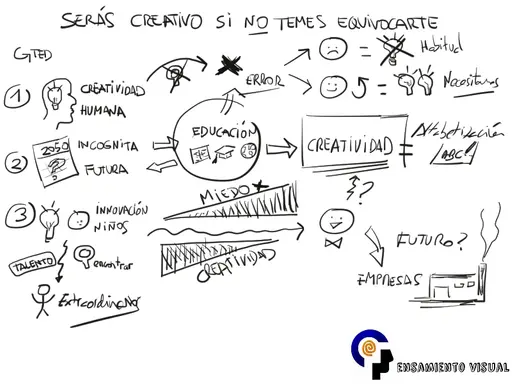 SERÁS CREATIVO SI NO TEMES EQUIVOCARTE
GTED
1) CREATIVIDAD
HUMANA
2) 2050
?
INCOGNITA
FUTURA
3) INNOVACIÓN
NIÑOS
TALENTO
encontrar
Extraordinario
EDUCACIÓN
MIEDO
CREATIVIDAD
ERROR
= Habitual
= Necesitamos
CREATIVIDAD
=
Alfabetización
ABC
?
FUTURO?
EMPRESAS
ENSAMIENTO VISUAL